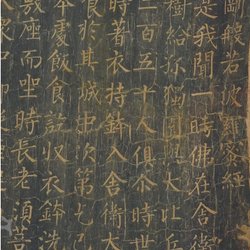 剛般若波羅蜜經
是我聞一時佛在舍衛
樹給孤獨園與大比丘
二百五十人俱尒時世
時著衣持鉢入舍衛大
食於其城中次第乞已
本處飯食訖收衣鉢洗
敷座而坐時長老須菩